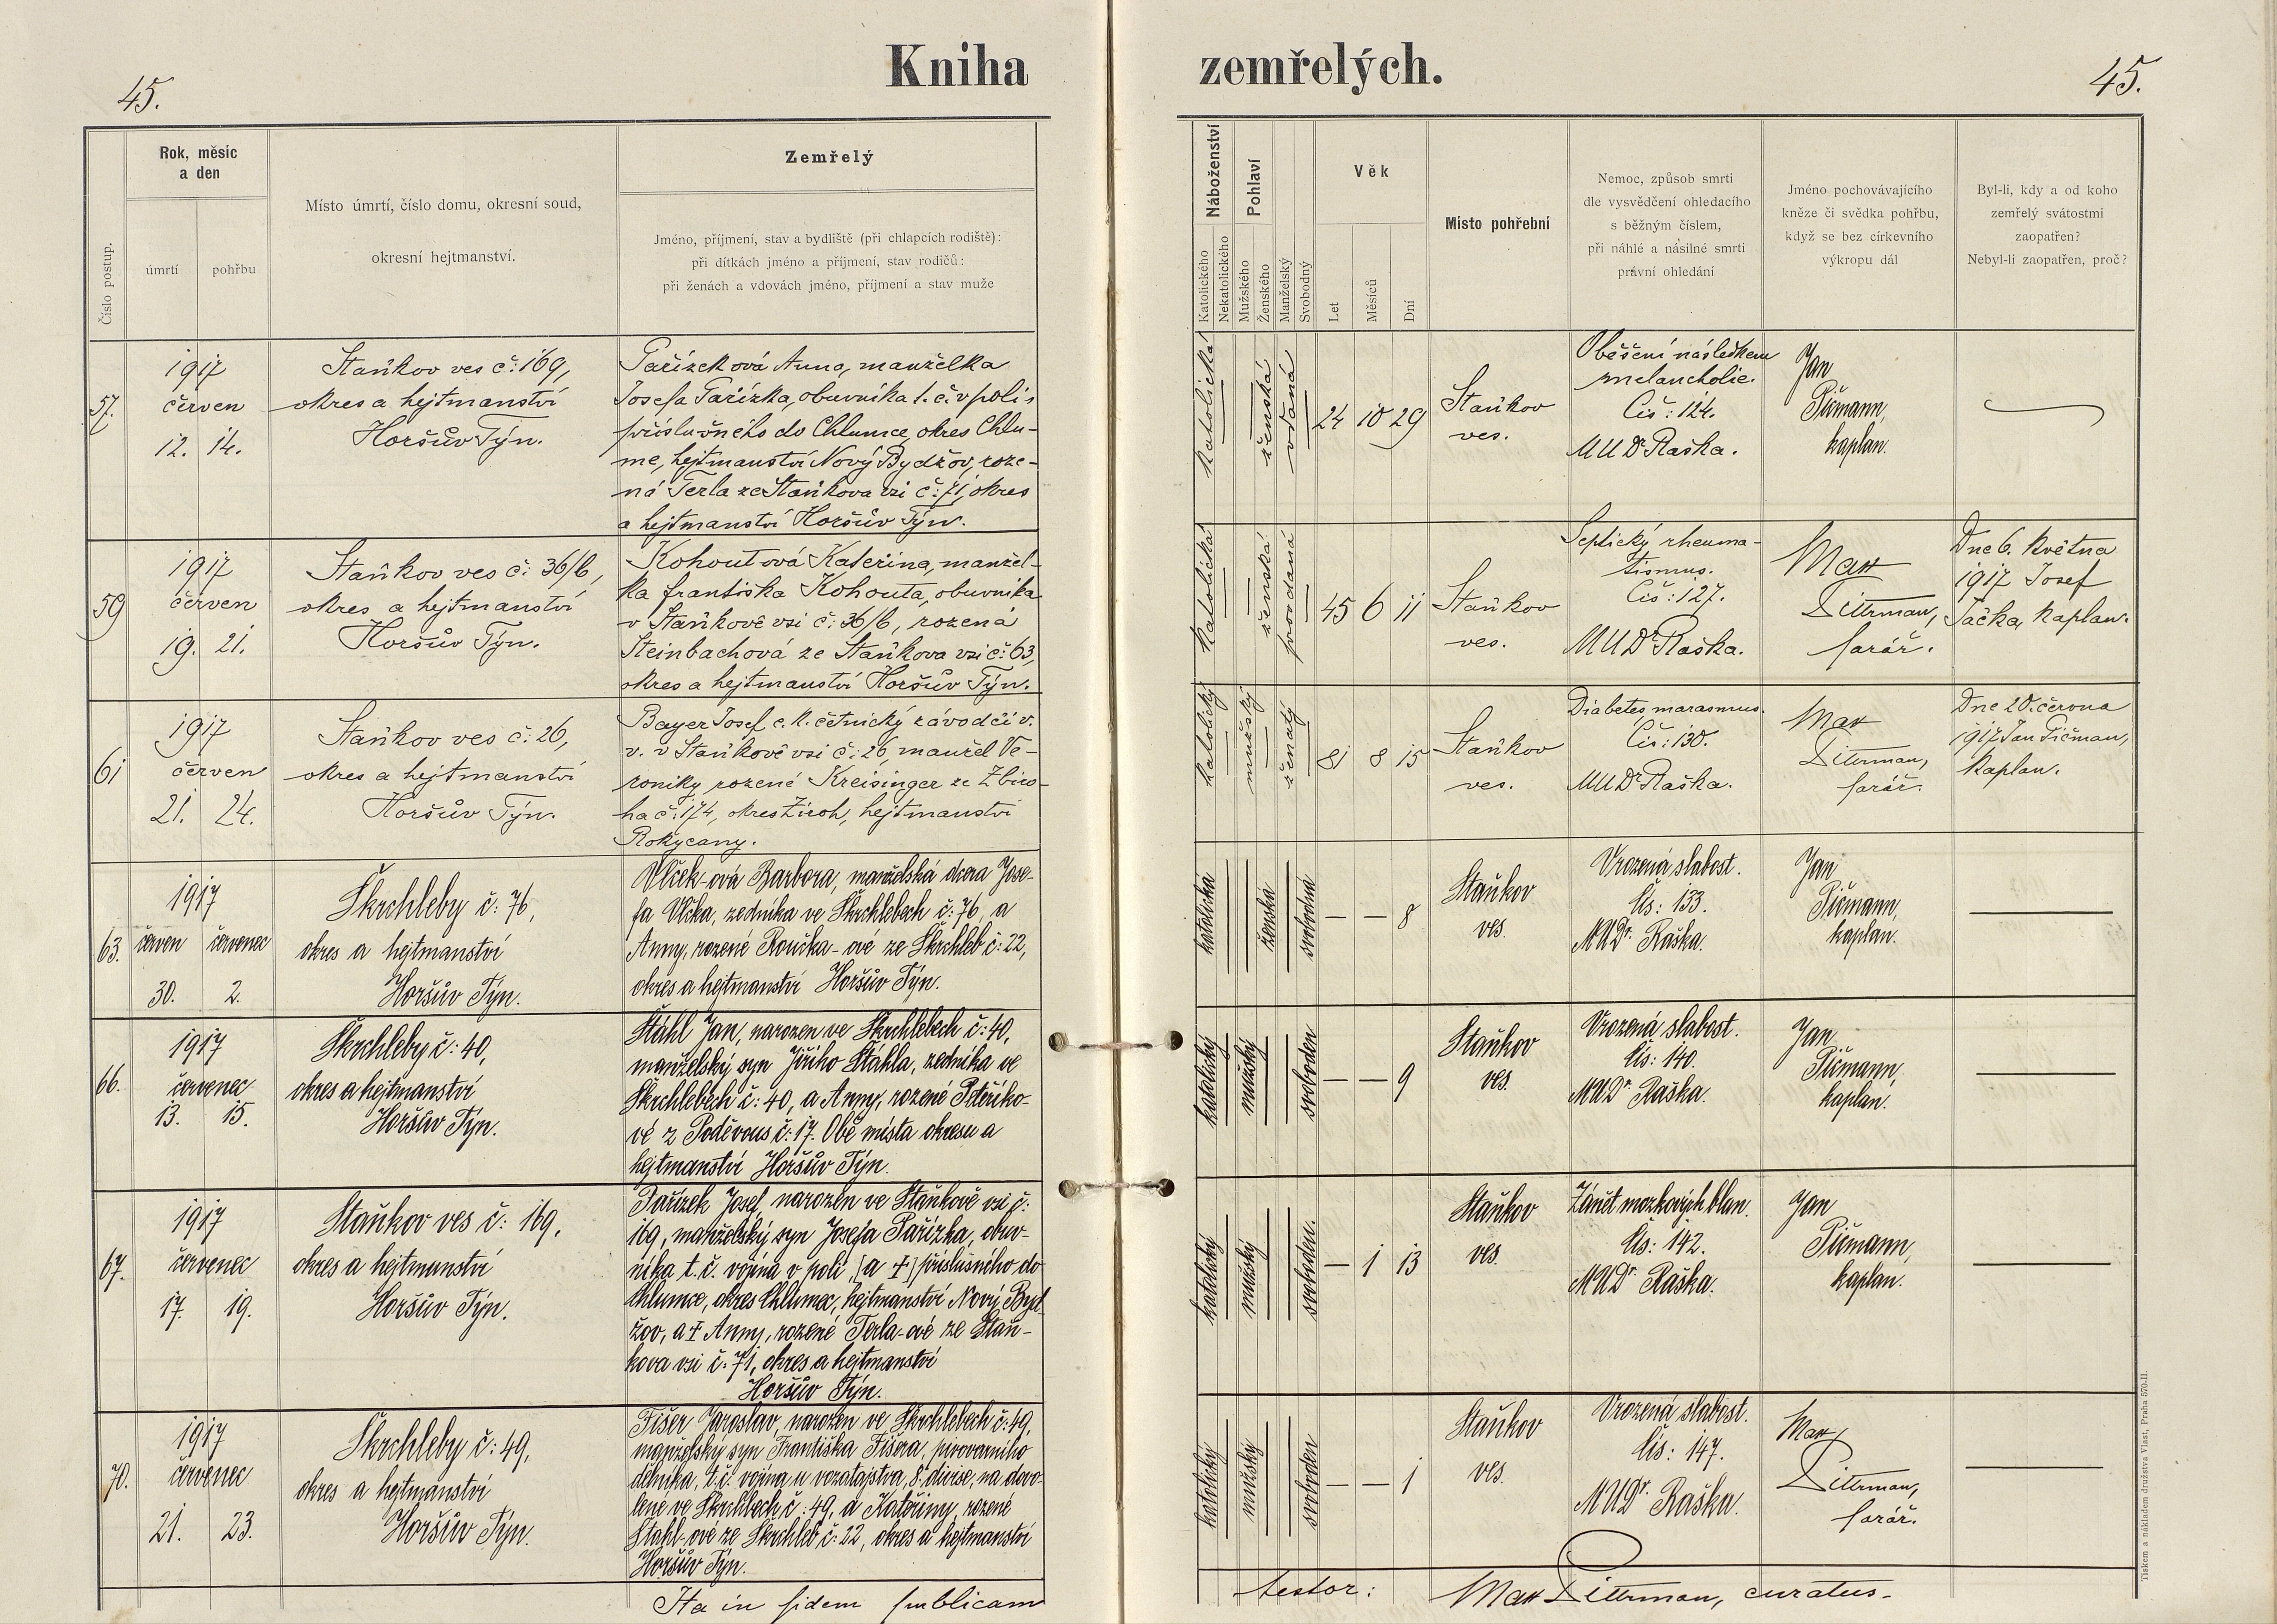 45.
Kniha zemřelých.
45.
Číslo postup.
Rok, měsíc
a den
úmrtí
pohřbu
Místo úmrtí, číslo domu, okresní soud,
okresní hejtmanství.
Zemřelý
Jméno, příjmení, stav a bydliště (při chlapcích rodiště):
při dítkách jméno a příjmení, stav rodičů:
při ženách a vdovách jméno, příjmení a stav muže
Náboženství
Katolického
Nekatolického
Pohlaví
Mužského
Ženského
Manželský
Svobodný
Věk
Let
Měsíců
Dní
Místo pohřební
Nemoc, způsob smrti
dle vysvědčení ohledacího
s běžným číslem,
při náhlé a násilné smrti
právní ohledání
Jméno pochovávajícího
kněze či svědka pohřbu,
když se bez církevního
výkropu dál
Byl-li, kdy a od koho
zemřelý svátostmi
zaopatřen?
Nebyl-li zaopatřen, proč?
57.
1917
červen
12. 14.
Staňkov ves č: 169,
okres a hejtmanství
Horšův Týn.
Pařízková Anna, manželka
Josefa Pařízka, obuvníka t. č. v poli,
příslušného do Chlumce, okres Chlu-
mec, hejtmanství Nový Bydžov, roze-
ná Terla ze Staňkova vsi č: 71, okres
a hejtmanství Horšův Týn.
katolická
ženská
vdaná
24 10 29
Staňkov
ves.
Oběšení následkem
melancholie.
Čís: 124.
MUDr Raška.
Jan
Pičmann,
kaplan.
59
1917
červen
19. 21.
Staňkov ves č: 36/b,
okres a hejtmanství
Horšův Týn.
Kohoutová Kateřina, manžel-
ka františka Kohouta, obuvníka
v Staňkově vsi č: 36/b, rozená
Steinbachová ze Staňkova vsi č: 63,
okres a hejtmanství Horšův Týn.
katolická
ženská
provdaná
45 6 11
Staňkov
ves.
Septický rheuma-
tismus.
Čís: 127.
MUDr Raška.
Max
Dittrman,
farář.
Dne 6. května
1917 Josef
Tačka, kaplan.
61
1917
červen
21. 24.
Staňkov ves č: 26,
okres a hejtmanství
Horšův Týn.
Bayer Josef, c. k. četnický závodčí v.
v. v Staňkově vsi č: 26, manžel Ve-
roniky rozené Kreisinger ze Zbiro-
ha č: 174, okres Zbiroh, hejtmanství
Rokycany.
katolický
mužský
ženatý
81 8 15
Staňkov
ves.
Diabetes marasmus.
Čís: 130.
MUDr Raška.
Max
Dittrman,
farář.
Dne 20. června
1917 Jan Pičman,
kaplan.
63.
1917
červen červenec
30. 2.
Škrchleby č: 76,
okres a hejtmanství
Horšův Týn.
Vlček-ová Barbora, manželská dcera Jose-
fa Vlčka, zedníka ve Škrchlebech č: 76, a
Anny, rozené Roučka-ové ze Škrchleb č: 22,
okres a hejtmanství Horšův Týn.
katolická
ženská
svobodná
— — 8
Staňkov
ves.
Vrozená slabost.
Čís: 133.
MUDr. Raška.
Jan
Pičmann,
kaplan.
66.
1917
červenec
13. 15.
Škrchleby č: 40,
okres a hejtmanství
Horšův Týn.
Stáhl Jan, narozen ve Škrchlebech č: 40,
manželský syn Jiřího Stahla, zedníka ve
Škrchlebech č: 40, a Anny, rozené Peteříko-
vé z Poděvous č: 17. Obě místa okresu a
hejtmanství Horšův Týn.
katolický
mužský
svoboden
— — 9
Staňkov
ves.
Vrozená slabost.
Čís: 140.
MUDr. Raška.
Jan
Pičmann,
kaplan.
67.
1917
červenec
17. 19.
Staňkov ves č: 169,
okres a hejtmanství
Horšův Týn.
Pařízek Josef, narozen ve Staňkově vsi č:
169, manželský syn Josefa Pařízka, obuv-
níka t. č. vojína v poli, [a †] příslušného do
Chlumce, okres Chlumec, hejtmanství Nový Byd-
žov, a † Anny, rozené Terla-ové ze Staň-
kova vsi č: 71, okres a hejtmanství
Horšův Týn.
katolický
mužský
svoboden.
— 1 13
Staňkov
ves.
Zánět mozkových blan.
Čís: 142.
MUDr. Raška.
Jan
Pičmann,
kaplan.
70.
1917
červenec
21. 23.
Škrchleby č: 49,
okres a hejtmanství
Horšův Týn.
Fišer Jaroslav, narozen ve Škrchlebech č: 49,
manželský syn Františka Fišera, pivovarního
dělníka, t. č. vojína u vozatajstva, 8. divise, na dovo-
lené ve Škrchlebech č: 49, a Kateřiny, rozené
Stahl-ové ze Škrchleb č: 22, okres a hejtmanství
Horšův Týn.
katolický
mužský
svoboden
— — 1
Staňkov
ves.
Vrozená slabost.
Čís: 147.
MUDr. Raška.
Max
Dittrman,
farář.
Ita in fidem publicam testor: Max Dittrman, curatus.
Tiskem a nákladem družstva Vlast, Praha 570-II.